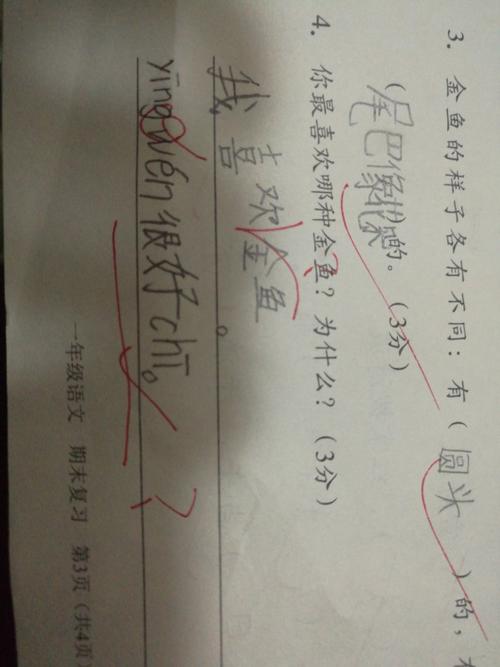 3. 金鱼的样子各有不同：有（圆头）的，
（尾巴像花）的。（3分）
4. 你最喜欢哪种金鱼？为什么？（3分）
我喜欢金鱼。
yīngwèn很好chī。
一年级语文 期末复习 第3页（共4页